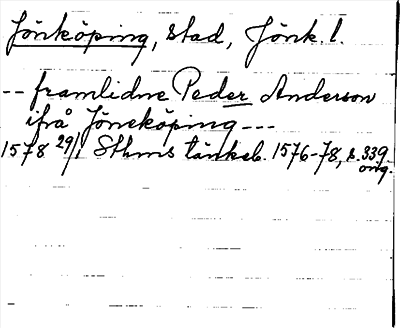 Jönköping, stad, Jönk. l.
-- framlidne Peder Anderson
ifrå Jöneköping ---
1578 29/1 Sthms tänkeb. 1576-78, s. 339.
orig.